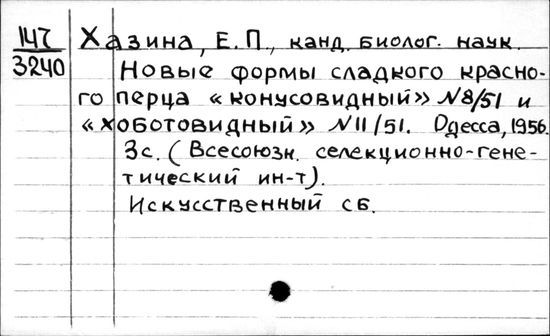 147 Хазина, Е.П., канд. биолог. наук.
3240 Новые формы сладкого красно-
го перца «конусовидный» N8/51 и
«хоботовидный» N11/51. Одесса, 1956.
3с. (Всесоюзн. селекционно-гене-
тический ин-т).
Искусственный сб.